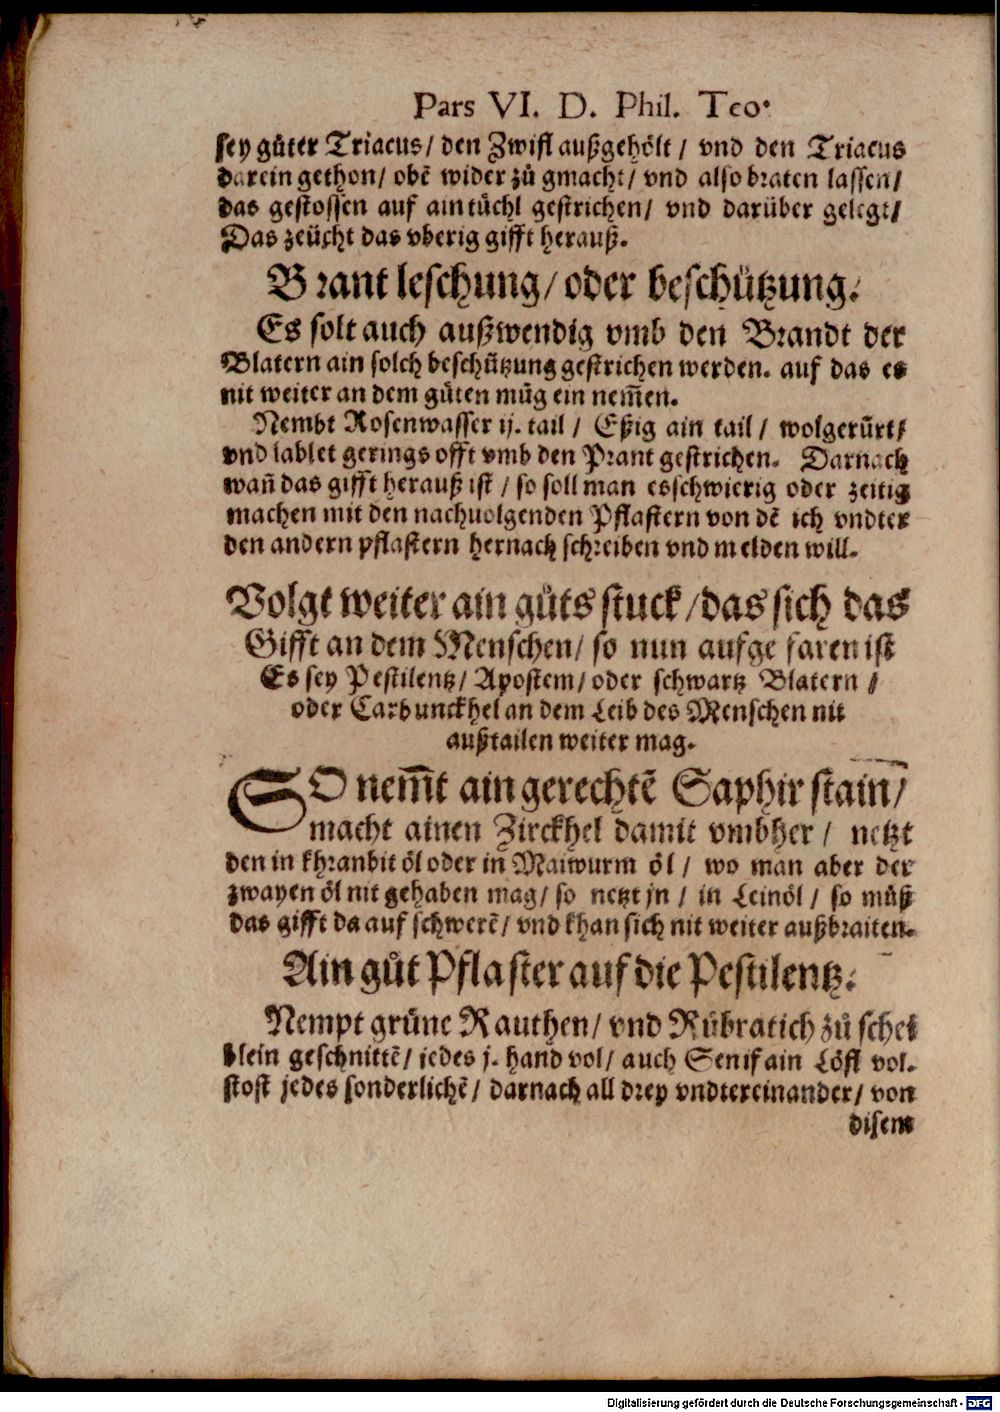 Pars VI. D. Phil. Teo.
sey gůter Triacus/ den Zwifl außgehölt / vnd den Triacus
darein gethon/ obē wider zů gmacht/ vnd also braten lassen/
das gestossen auf ain tüchl gestrichen/ vnd darüber gelegt/
Das zeücht das vberig gifft herauß.
Brant leschung/ oder beschützung.
Es solt auch außwendig vmb den Brandt der
Blatern ain solch beschützung gestrichen werden. auf das es
nit weiter an dem gůten müg ein nem̄en.
Nembt Rosenwasser ij. tail / Eßig ain tail / wolgerürt/
vnd lablet gerings offt vmb den Prant gestrichen. Darnach
wan̄ das gifft herauß ist / so soll man es schwierig oder zeitig
machen mit den nachuolgenden Pflastern von dē ich vndter
den andern pflastern hernach schreiben vnd melden will.
Volgt weiter ain gůts stuck /das sich das
Gifft an dem Menschen/ so nun aufge faren ist
Es sey Pestilentz/ Apostem/ oder schwartz Blatern /
oder Carbunckhel an dem Leib des Menschen nit
außtailen weiter mag.
SO nem̄t ain gerechtē Saphir stain/
macht ainen Zirckhel damit vmbher / netzt
den in khranbit öl oder in Maiwurm öl / wo man aber der
zwayen öl nit gehaben mag/ so netzt jn / in Leinöl / so můß
das gifft da auf schwerē/ vnd khan sich nit weiter außbraiten.
Ain gůt Pflaster auf die Pestilentz.
Nempt grüne Rauthen/ vnd Růbratich zů schei
blein geschnittē/ jedes j. hand vol/ auch Senif ain Löfl vol.
stost jedes sonderlichē/ darnach all drey vndtereinander/ von
disem
Digitalisierung gefördert durch die Deutsche Forschungsgemeinschaft - DFG